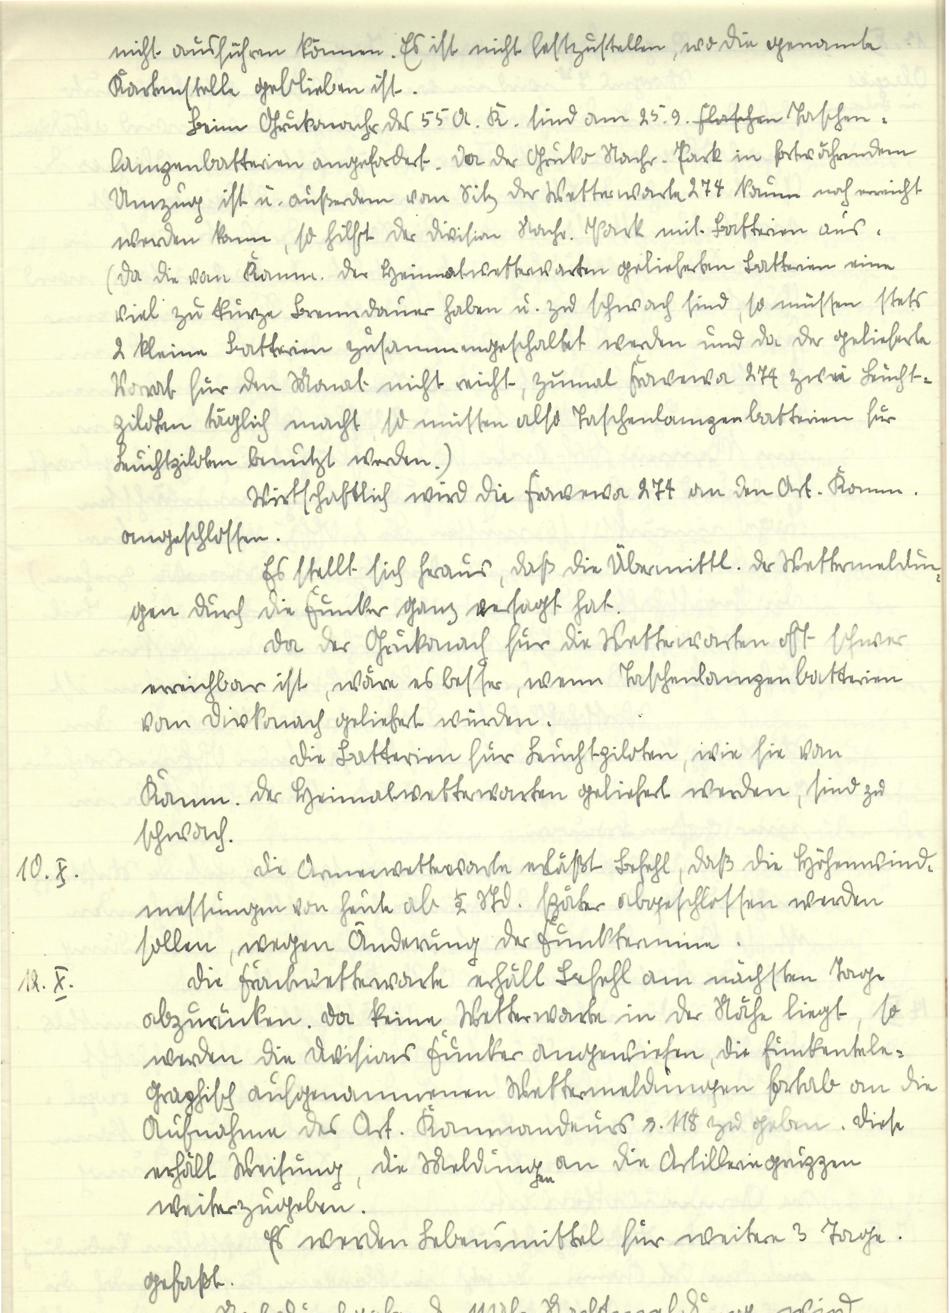 nicht ausführen können. Es ist nicht festzustellen, wo die genannte
Kartenstelle geblieben ist.
Beim Grukonachr. des 55 A. K. sind am 25.9. Flaschen Taschen-
lampenbatterien angefordert. Da der Gruko Nachr. Park in fortwährendem
Umzug ist u. außerdem vom Sitz der Wetterwarte 274 kaum noch erreicht
werden kann, so hilft der Division Nachr. Park mit Batterien aus.
(Da die von Komm. der Heimatwetterwarten gelieferten Batterien eine
viel zu kurze Brenndauer haben u. zu schwach sind, so müssen stets
2 kleine Batterien zusammengeschaltet werden und da der gelieferte
Vorrat für den Monat nicht reicht, zumal Frawewa 274 zwei Leucht-
piloten täglich macht, so müssen also Taschenlampenbatterien für
Leuchtpiloten benutzt werden.)
Wirtschaftlich wird die Frawewa 274 an den Art. Komm.
angeschlossen.
Es stellt sich heraus, daß die Übermittl. der Wettermeldun-
gen durch die Funker ganz versagt hat.
Da der Grukonach für die Wetterwarten oft schwer
erreichbar ist, wäre es besser, wenn Taschenlampenbatterien
vom Divkonach geliefert würden.
Die Batterien für Leuchtpiloten, wie sie von
Komm. der Heimatwetterwarten geliefert werden, sind zu
schwach.
10. X. Die Armeewetterwarte erläßt Befehl, daß die Höhenwind-
messungen von heute ab ½ Std. später abgeschlossen werden
sollen, wegen Änderung der Funktermine.
12. X. Die Frontwetterwarte erhält Befehl am nächsten Tage
abzurücken. Da keine Wetterwarte in der Nähe liegt, so
werden die Divisions Funker angewiesen, die funkentele-
graphisch aufgenommenen Wettermeldungen fortab an die
Aufnahme des Art. Kommandeurs 118 zu geben. Diese
erhält Weisung, die Meldungen an die Artilleriegruppen
weiterzugeben.
Es werden Lebensmittel für weitere 3 Tage
gefaßt.